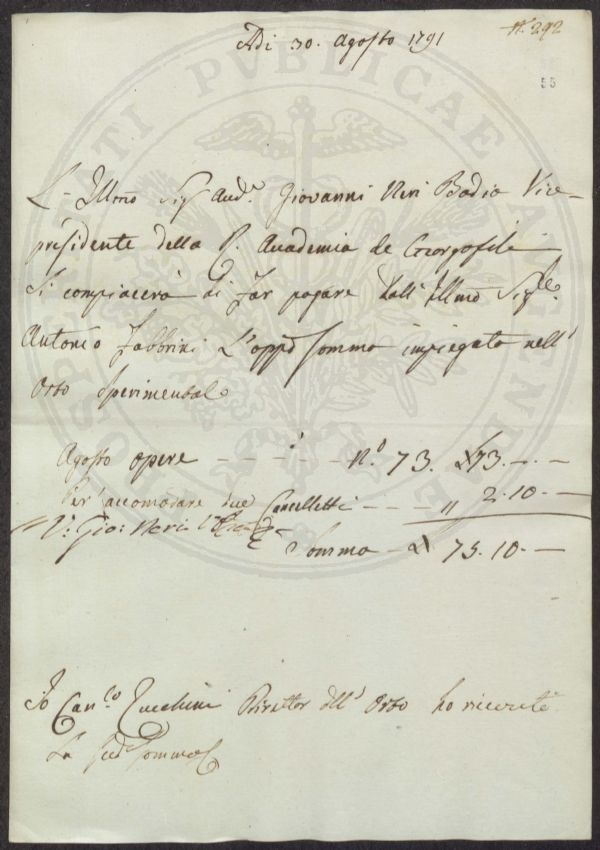 N. 292
Adi 30. Agosto 1791
55
L'Illmo Sigr Audre Giovanni Neri Badia Vice-
presidente della R. Accademia de Georgofili
Si compiacerà di far pagare dall' Illmo Sigre
Antonio Fabbrini L'appo Somma impiegata nell'
Orto Sperimentale
Agosto opere - - - - - N.o 73. £ 73. - . -
Per accomodare due Cancelletti - - - " 2. 10. -
Vo Gio: Neri
Somma - £ 75. 10. -
Io Canco Zucchini Direttor dell' Orto ho ricevuto
La sudda Somma
PROSPERITATI PVBLICAE AVGENDAE